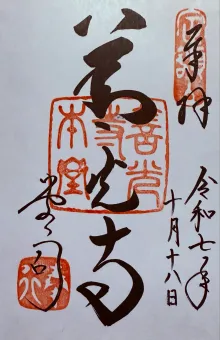 奉拝
令和七年
十月十八日
善光寺
善光
寺
本堂